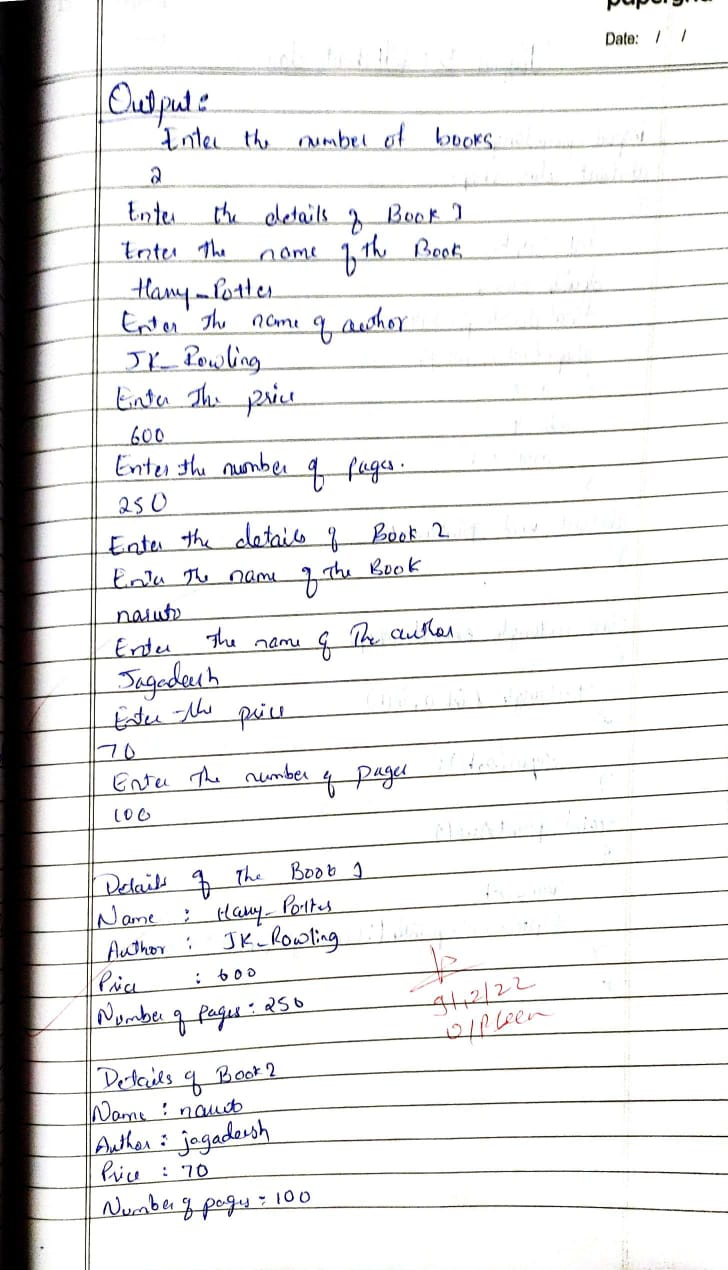 Date: / /
Output:
Enter the number of books
2
Enter the details of Book 1
Enter the name of the Book
Harry_Potter
Enter the name of author
JK_Rowling
Enter the price
600
Enter the number of pages.
250
Enter the details of Book 2
Enter the name of the Book
naruto
Enter the name of the author
Jagadeesh
Enter the price
70
Enter the number of pages
100
Details of the Book 1
Name : Harry_Potter
Author : JK_Rowling
Price : 600
Number of pages : 250
9/12/22
O/P seen
Details of Book 2
Name : naruto
Author : jagadeesh
Price : 70
Number of pages = 100